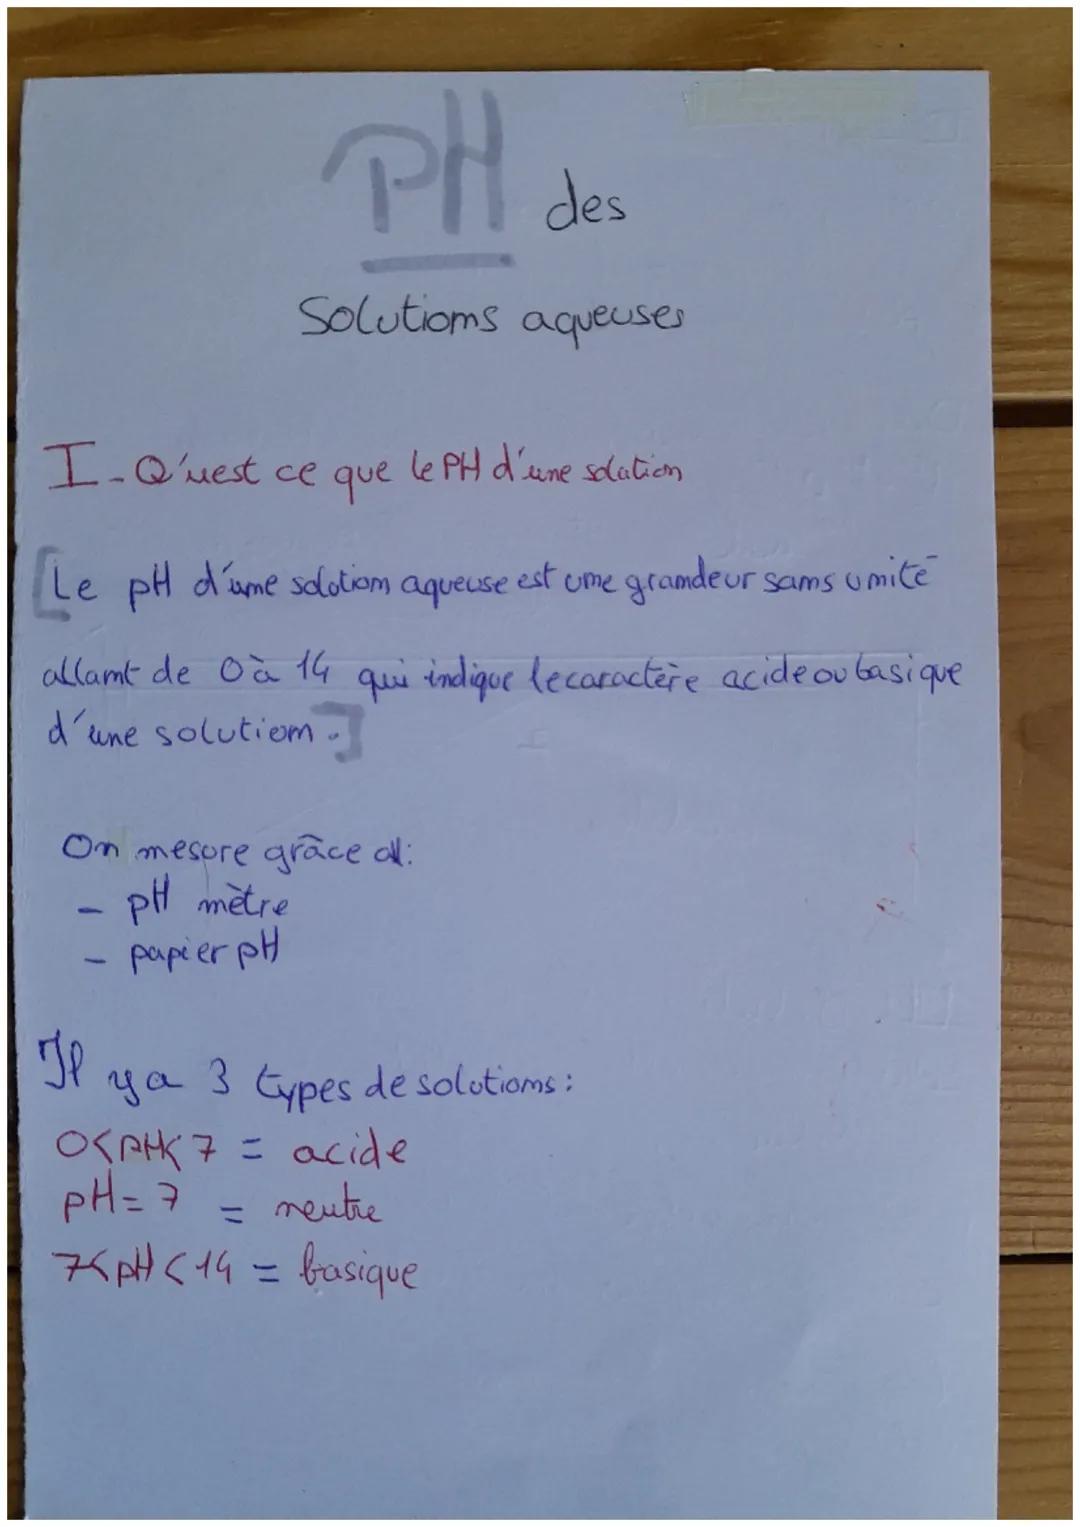 PH des
Solutions aqueuses
I - Q'uest ce que le PH d'une solution
[Le pH d'une solution aqueuse est une grandeur sans unité
allant de 0 à 14 qui indique le caractère acide ou basique
d'une solution.]
On mesure grâce à:
- pH mètre
- papier pH
Il y a 3 types de solutions:
0<PH<7 = acide
pH=7 = neutre
7<pH<14 = basique